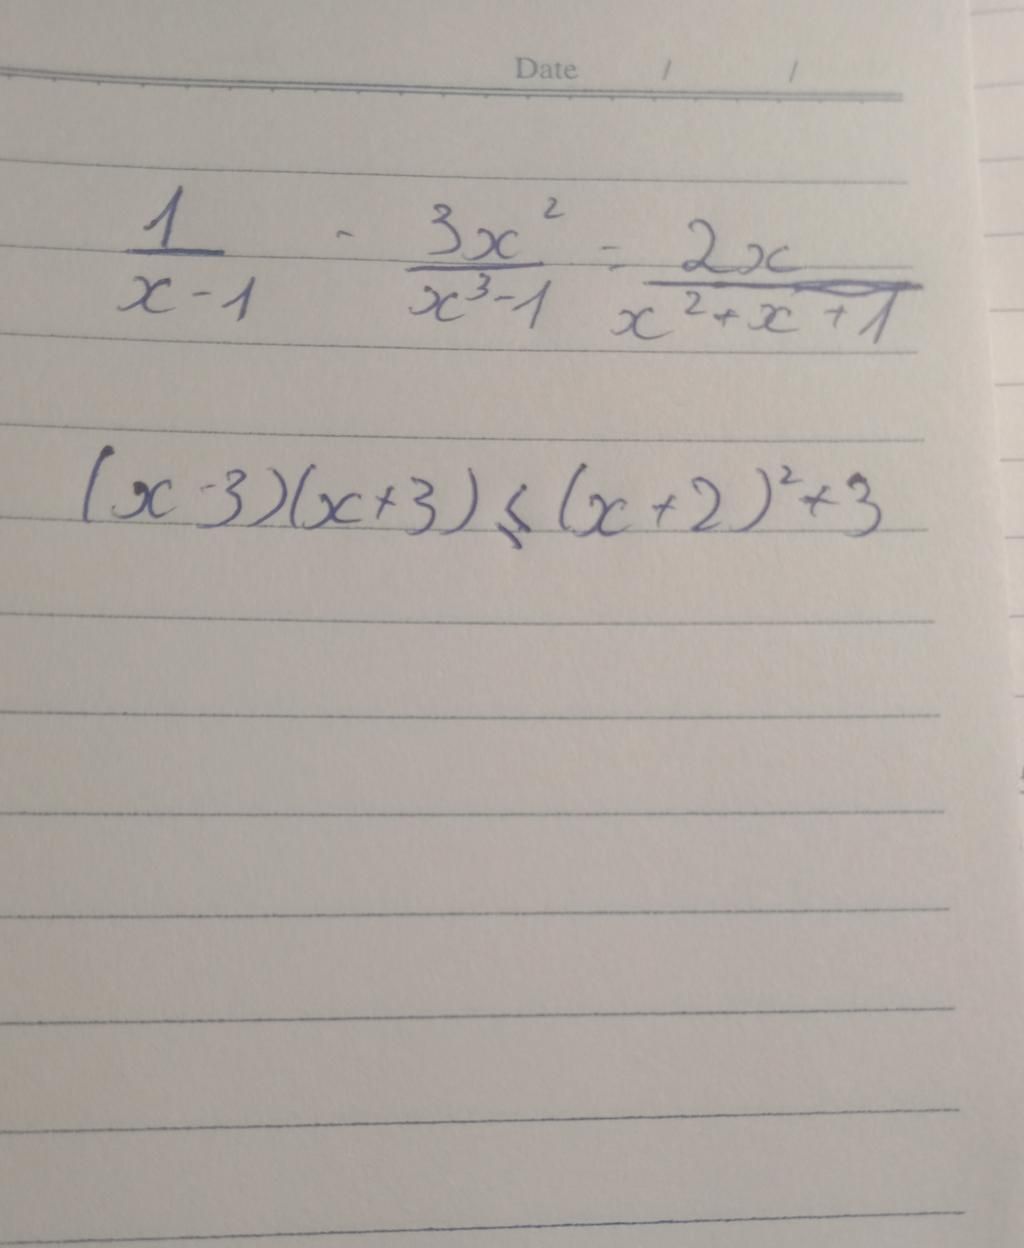 Date / /
1/(x-1) - 3x²/(x³-1) = 2x/(x²+x+1)
(x-3)(x+3) ≤ (x+2)²+3